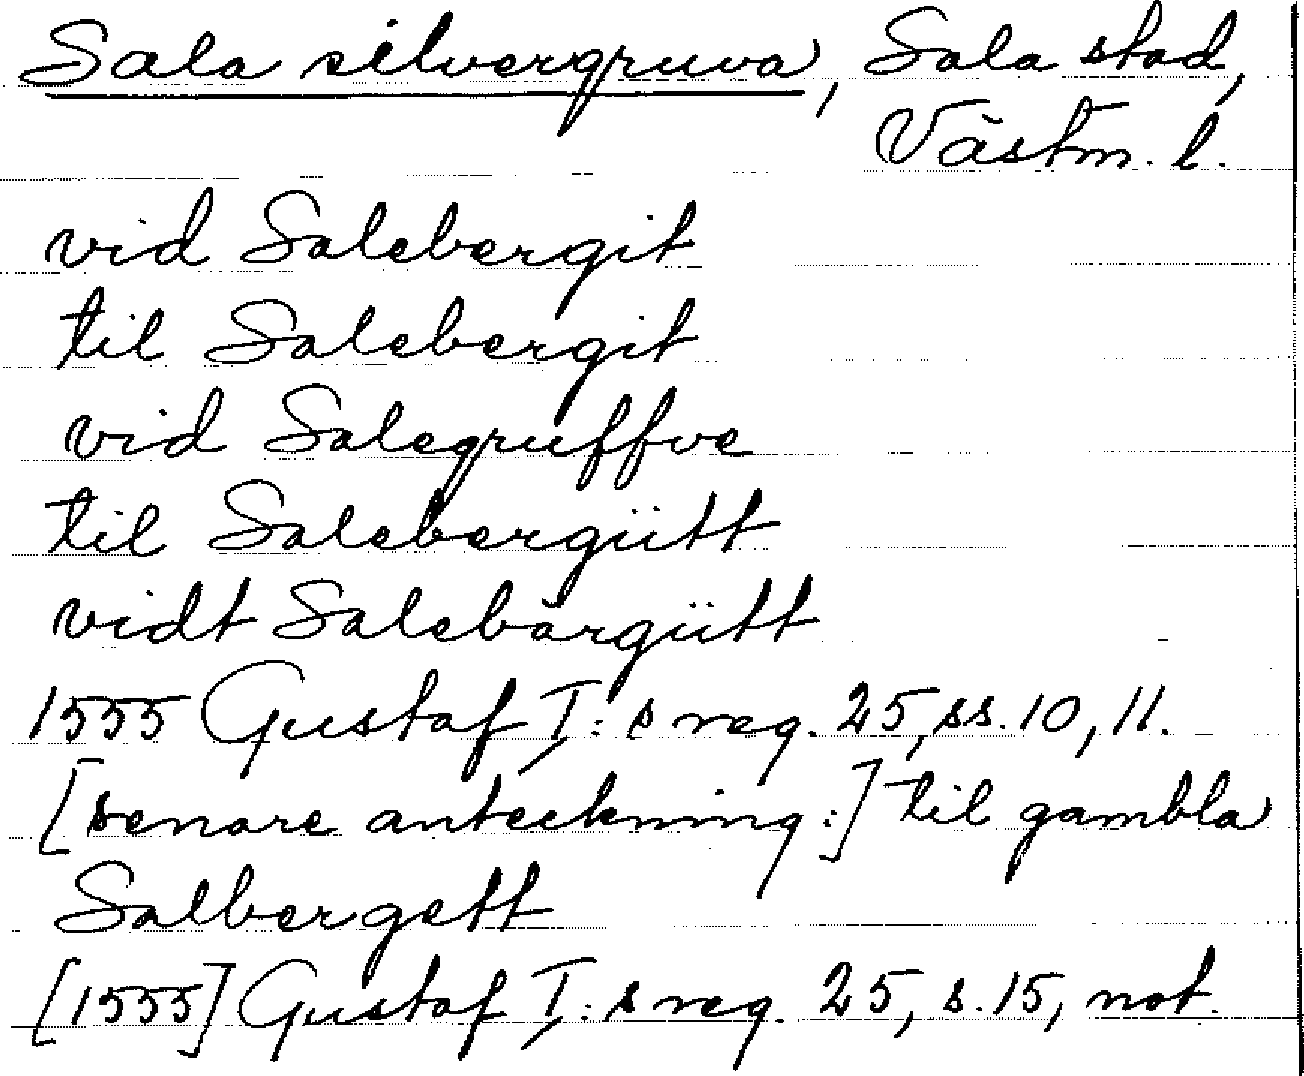 Sala silvergruva, Sala stad,
Västm. l.
vid Salebergit
til Salebergit
vid Salegruffve
til Salebergütt
vidt Salebärgütt
1555 Gustaf I:s reg. 25, ss. 10, 11.
[senare anteckning:] til gambla
Salbergett
[1555] Gustaf I:s reg. 25, s. 15, not.